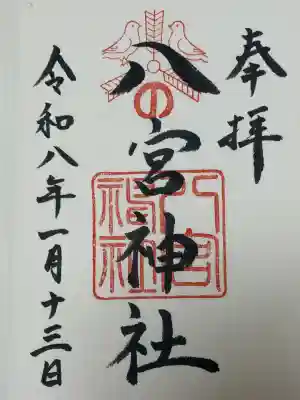 奉拝
八の宮神社
八宮
神社
令和八年一月十三日